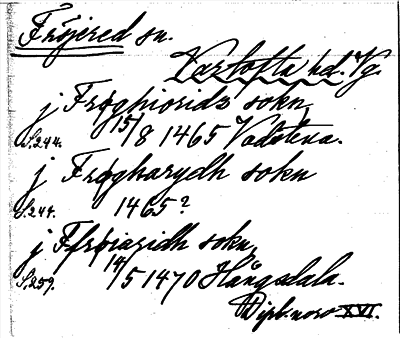 Fröjered sn.
Vartofta hd. Vg.
j Frøghioridz sokn
S. 244. 15/8 1465 Vadstena.
j Frøgharydh sokn
S. 244. 1465?
j Ffrøiaridh sokn
S. 259. 14/5 1470 Hångsdala.
Dipl. norv XVI.